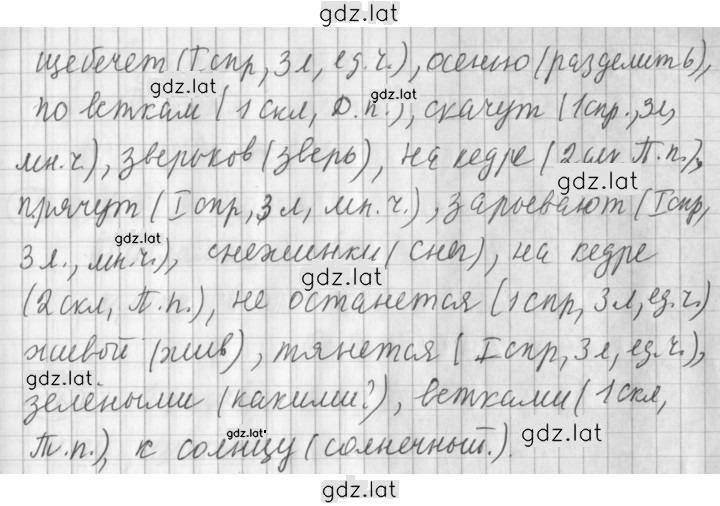 gdz.lat
щебечет (I спр, 3 л, ед.ч.), осенью (разделить),
gdz.lat
gdz.lat
по веткам (1 скл, Д.п.), скачут (1 спр., 3л,
мн.ч.), зверьков (зверь), на кедре (2 скл П.п.),
gdz.lat
прячут (I спр, 3 л, мн.ч.), зарывают (I спр,
gdz.lat
3 л., мн.ч.), снежинки (снег), на кедре
gdz.lat
(2 скл, П.п.), не останется (1 спр, 3 л, ед.ч.)
живой (жив), тянется (I спр, 3 л, ед.ч.),
gdz.lat
зелёными (какими?), ветками (1 скл,
gdz.lat
gdz.lat
Т.п.), к солнцу (солнечный.).
gdz.lat